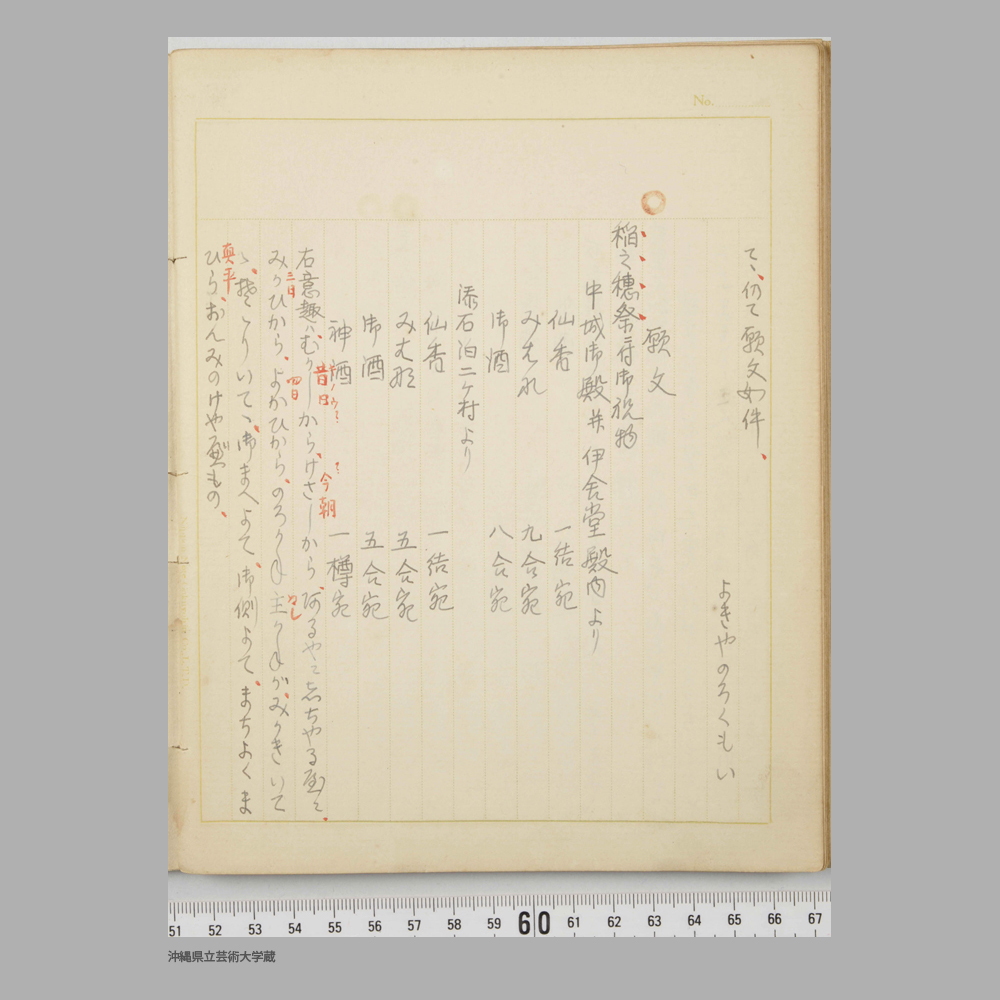 て、仍て願文如件、
よきやのろくもい
願文
稲之穂祭ニ付御祝物
中城御殿并伊舎堂殿内より
仙香 一結宛
みはな 九合宛
御酒 八合宛
添石泊二ケ村より
仙香 一結宛
みはな 五合宛
御酒 五合宛
神酒 一樽宛
右意趣ハ、むかしから、けさしから
昔日
今朝
みかひから、よかひから、のろかね主かねが、みかきいて
三日
四日
ぬし
りいて、御まへよて、御側よて、まちよくま
ひらおんみのけや
真平
No.
51 52 53 54 55 56 57 58 59 60 61 62 63 64 65 66 67
沖縄県立芸術大学蔵